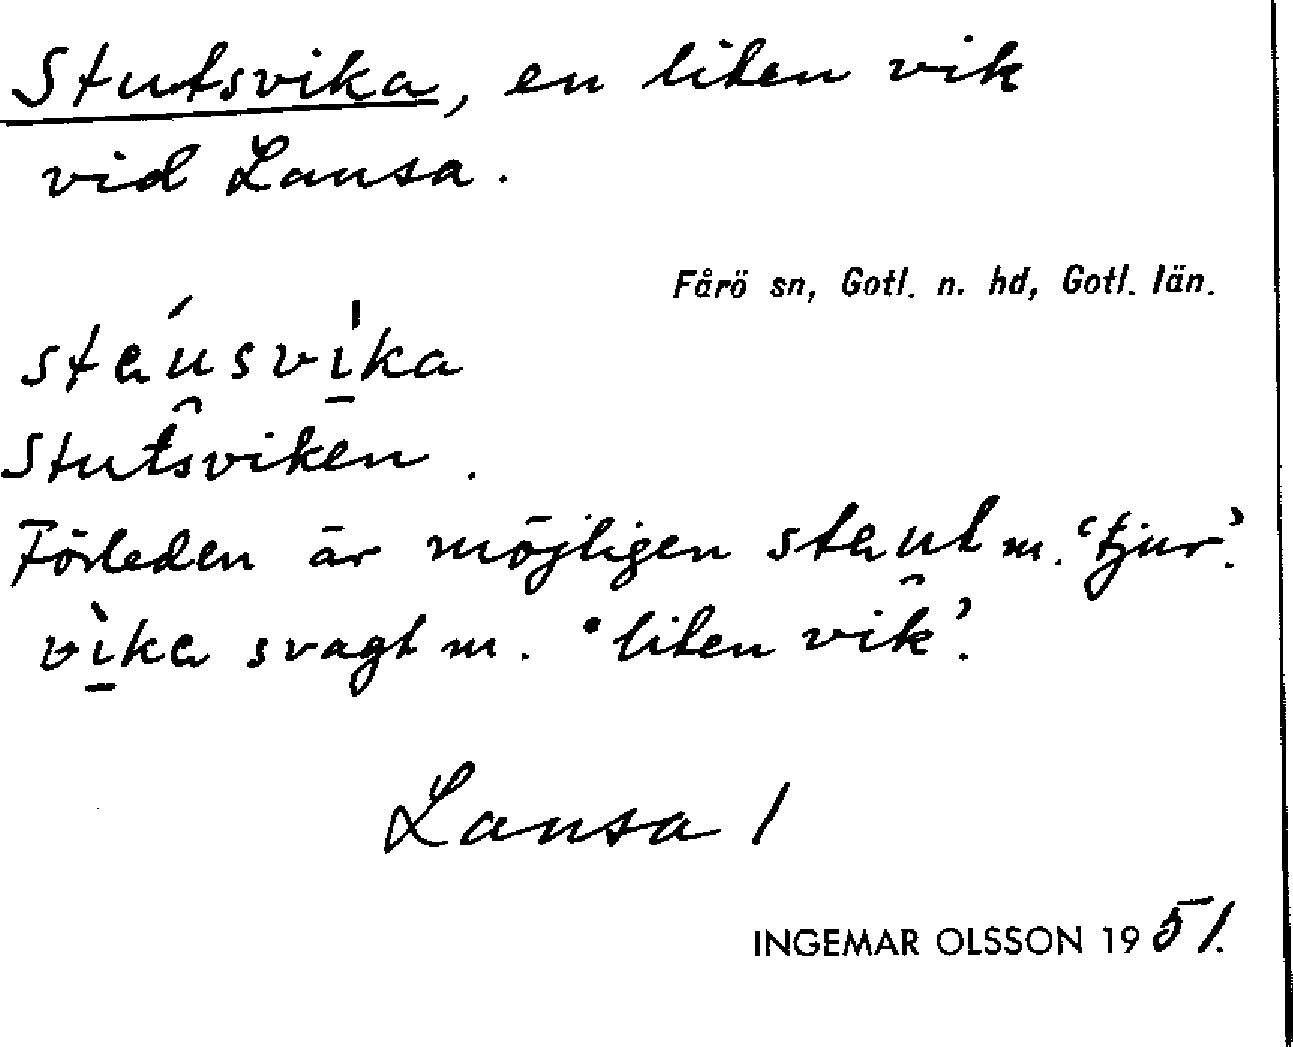 Stutsvika, en liten vik
vid Lansa.
Fårö sn, Gotl. n. hd, Gotl. län.
staú̯svi̱̍ka
Stutsviken.
Förleden är möjligen stau̯t m. ‘tjur’.
vì̱ka svagt m. ‘liten vik’.
Lansa 1
INGEMAR OLSSON 1951.